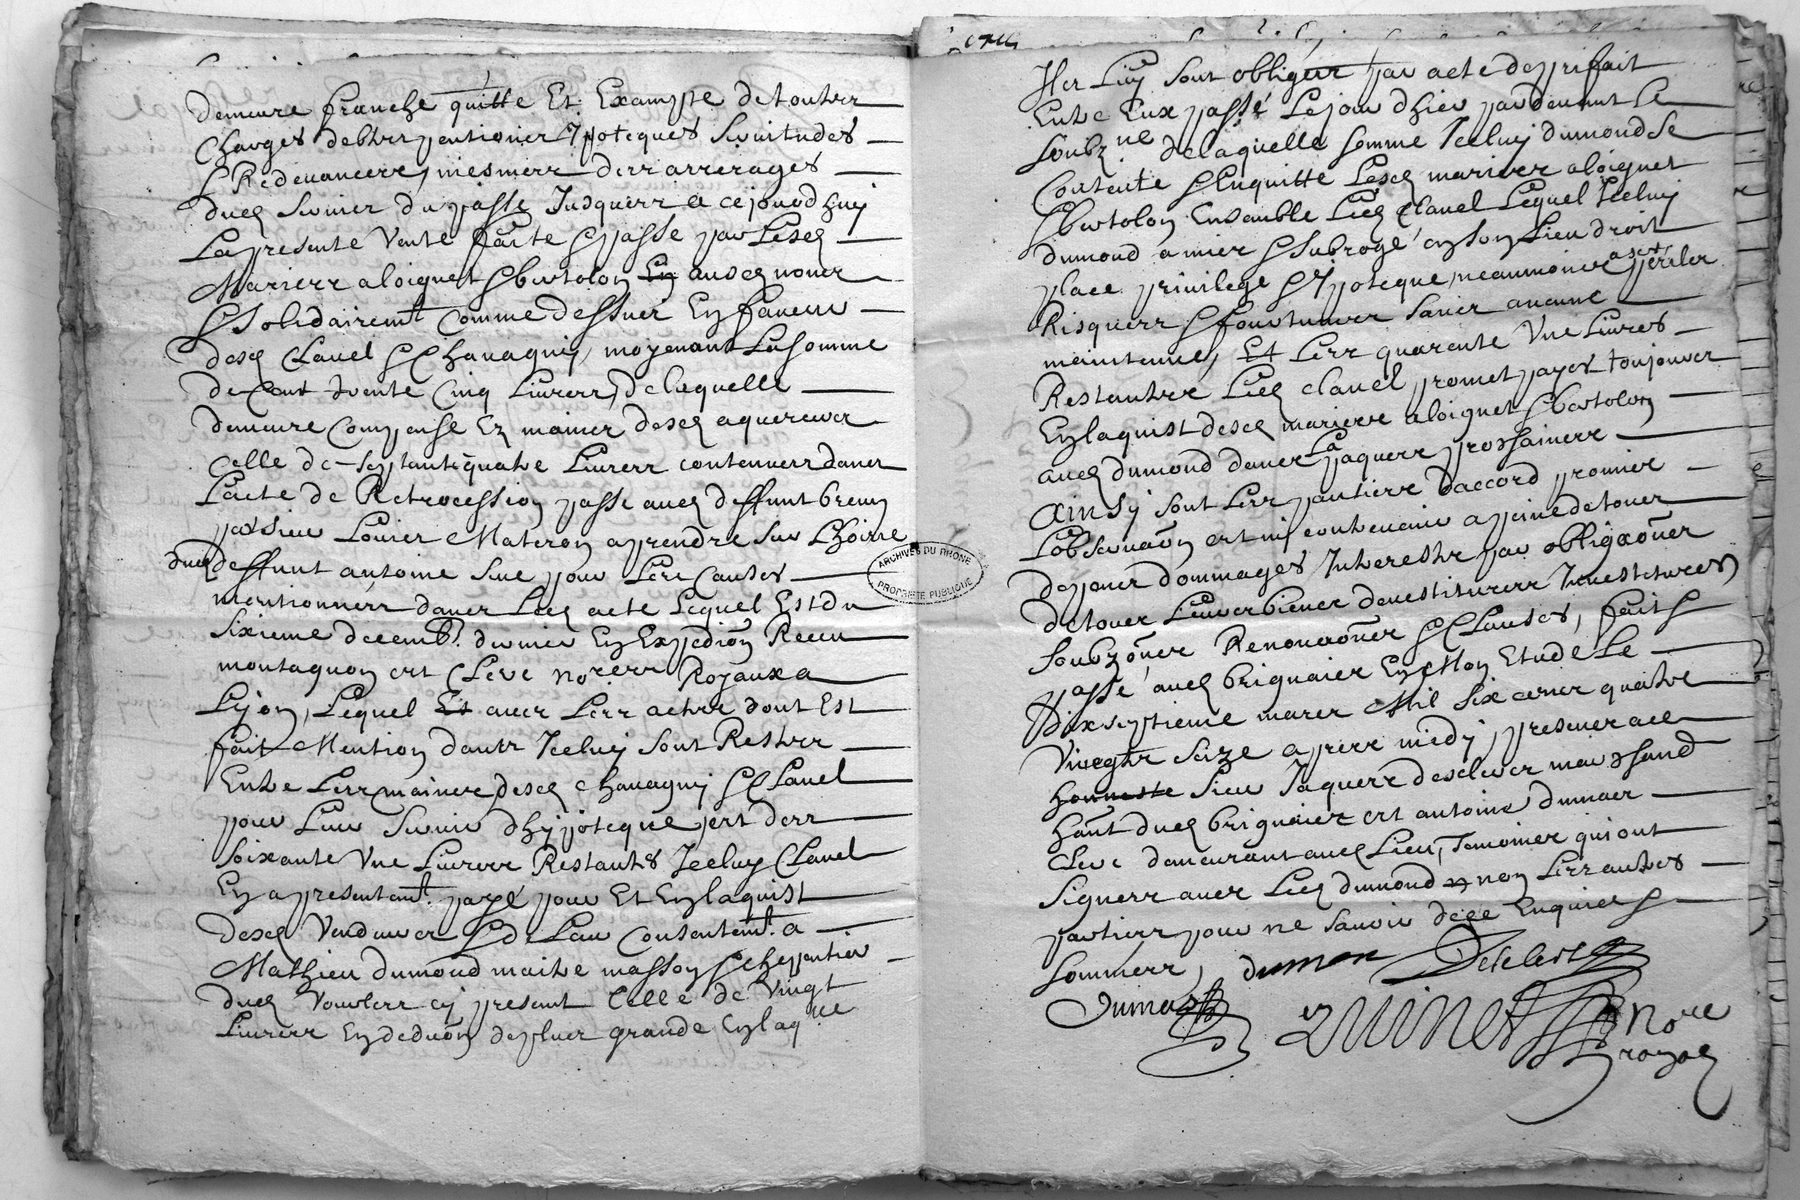 demeure franche quitte Et Exampte de toutes
charges debtes pentiones Ypoteques seruitudes
& Redeuances, mesmes des arrerages
dud seruies du passé Jusques a ce jourdhuy
La presente Vente faite & passé par Lesd
Maries aloignet & bertolon En ausd noms
& Solidairemt. comme dessus En faueur
desd Clauel & Chauagny, moyenant La somme
de Cent trente Cinq Liures, de laquelle
demeure Compensé Ez mains desd aquereurs
celle de septante quatre Liures contenues dans
Lacte de Retrocession passé auec deffunt
par sieur Louis Materon a prendre sur Lhoirie
dud deffunt antoine pour Les Causes
mentionnées dans Led acte Lequel Est du
sixieme decemb. dernier En Expedion Receu
montagnon et Cleve nores Royaux a
Lyon, Lequel Et auec Les actes dont Est
fait Mention dans Jcelluy sont Restes
Entre Les mains desd chauagny & Clauel
pour Leur seruir dhypoteque, et des
soixante Vne Liures Restants Jcelluy Clauel
En a presentemt. payé pour Et En laquist
desd Vendeurs & de Leur Consentemt. a
Mathieu dumond maitre masson & charpentier
dud Vourles cy present Celle de Vingt
Liures En deduon de plus grande En laqlle
ARCHIVES DU RHONE
PROPRIETE PUBLIQUE
Jls Luy sont obliges par acte de prifait
Entre Eux passé Le jour dhier par deuant le
soubz ne de laquelle somme Jcelluy dumond se
Contente & Enquitte Lesd maries aloignet
& bertolon Ensemble Led Clauel Lequel Jcelluy
dumond a mis & subrogé en son Lieu droit
place priuilege & Ypoteque, neaumoins a ses perilz
Risques & fourtunes sans aucune
maintenue, Et Les quarente Vne Liures
Restantes Led Clauel promet payer toujours
En laquist desd maries aloignet & bertolon
aud dumond dans La paques prossaines
Ainsy sont Les parties daccord promis
Lobseruaon et ny contreuenir a peine de tous
depans dommages Jnterestz par obligaons
de tous Leurs biens deuestitures Jnuestitures
soubzons Renonciaons & Clauses, fait &
passé aud brignais En Mon Etude Le
dix septieme mars Mil six cens quatre
Vingtz seize apres midy, presens
honneste sieur Jaques descleres marchand
hant dud brignais et antoine dumas
Clerc demeurant aud Lieu, Temoins qui ont
Signes auec Led dumond & non Les autres
parties pour ne sauoir de ce Enquis &
Sommes,
dumon
Descleres
Dumas
Quinet
Nore
royal